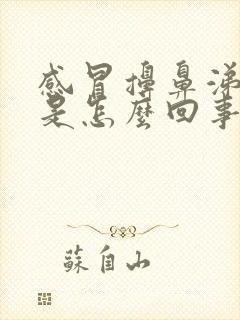 感冒擤鼻涕
是怎麼回事
蘇自山